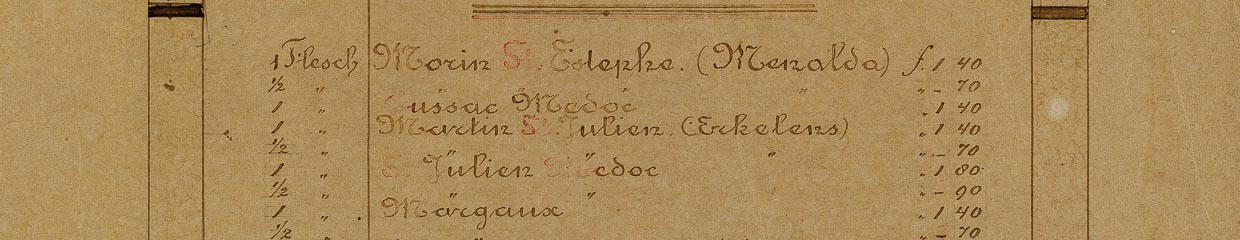 1 Flesch Morin St. Estephe. (Menalda) f. 1 40
1/2 " " " - 70
1 " Cussac Medoc " 1 40
1 " Martin St. Julien. (Erkelens) " 1 40
1/2 " " " " - 70
1 " St Julien Medoc " 1 80
1/2 " " " - 90
1 " Margaux " 1 40
1/2 " " - 70